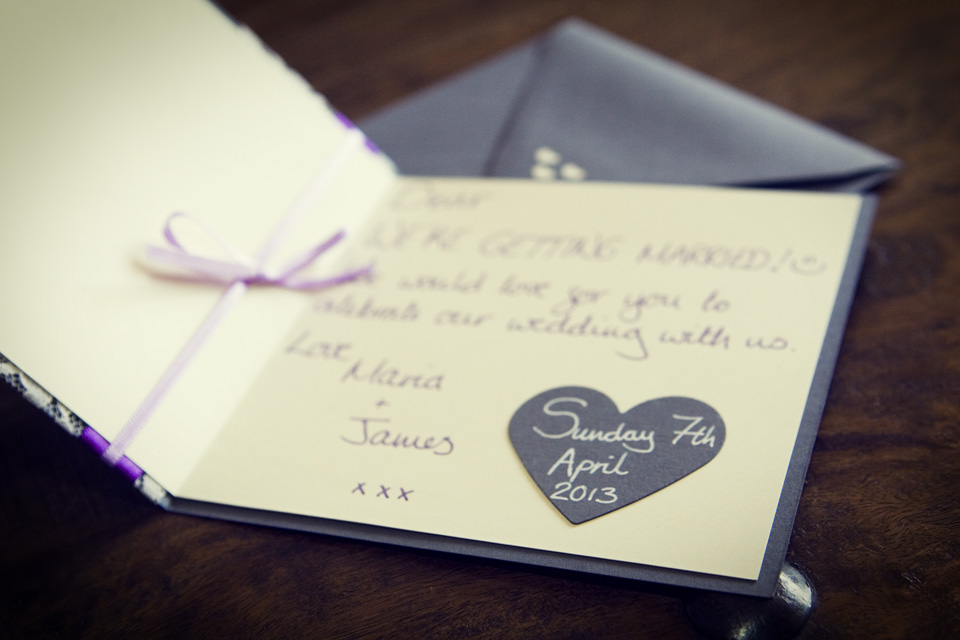 Dear
WE'RE GETTING MARRIED! ☺
We would love for you to
celebrate our wedding with us.
Love
Maria
+
James
x x x
Sunday 7th
April
2013